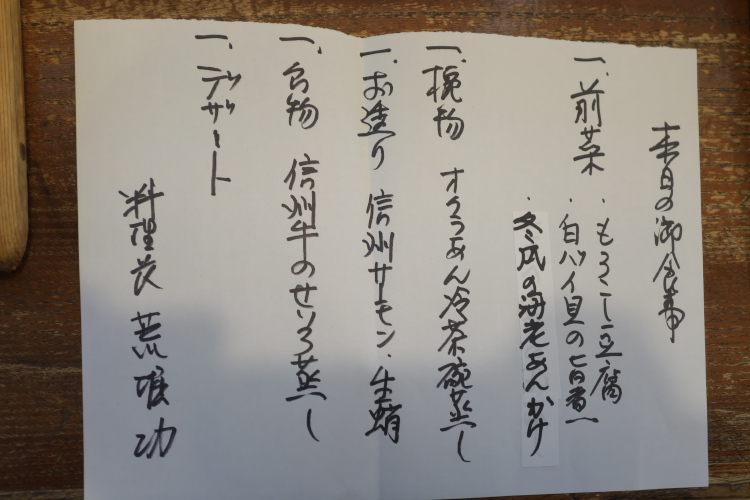 本日の御食事
一、前菜
・もろこし豆腐
・白バイ貝の旨煮
・冬瓜の海老あんかけ
一、椀物 オクラあん冷茶碗蒸し
一、お造り 信州サーモン・生蛸
一、台物 信州牛のせいろ蒸し
一、デザート
料理長 荒堀功